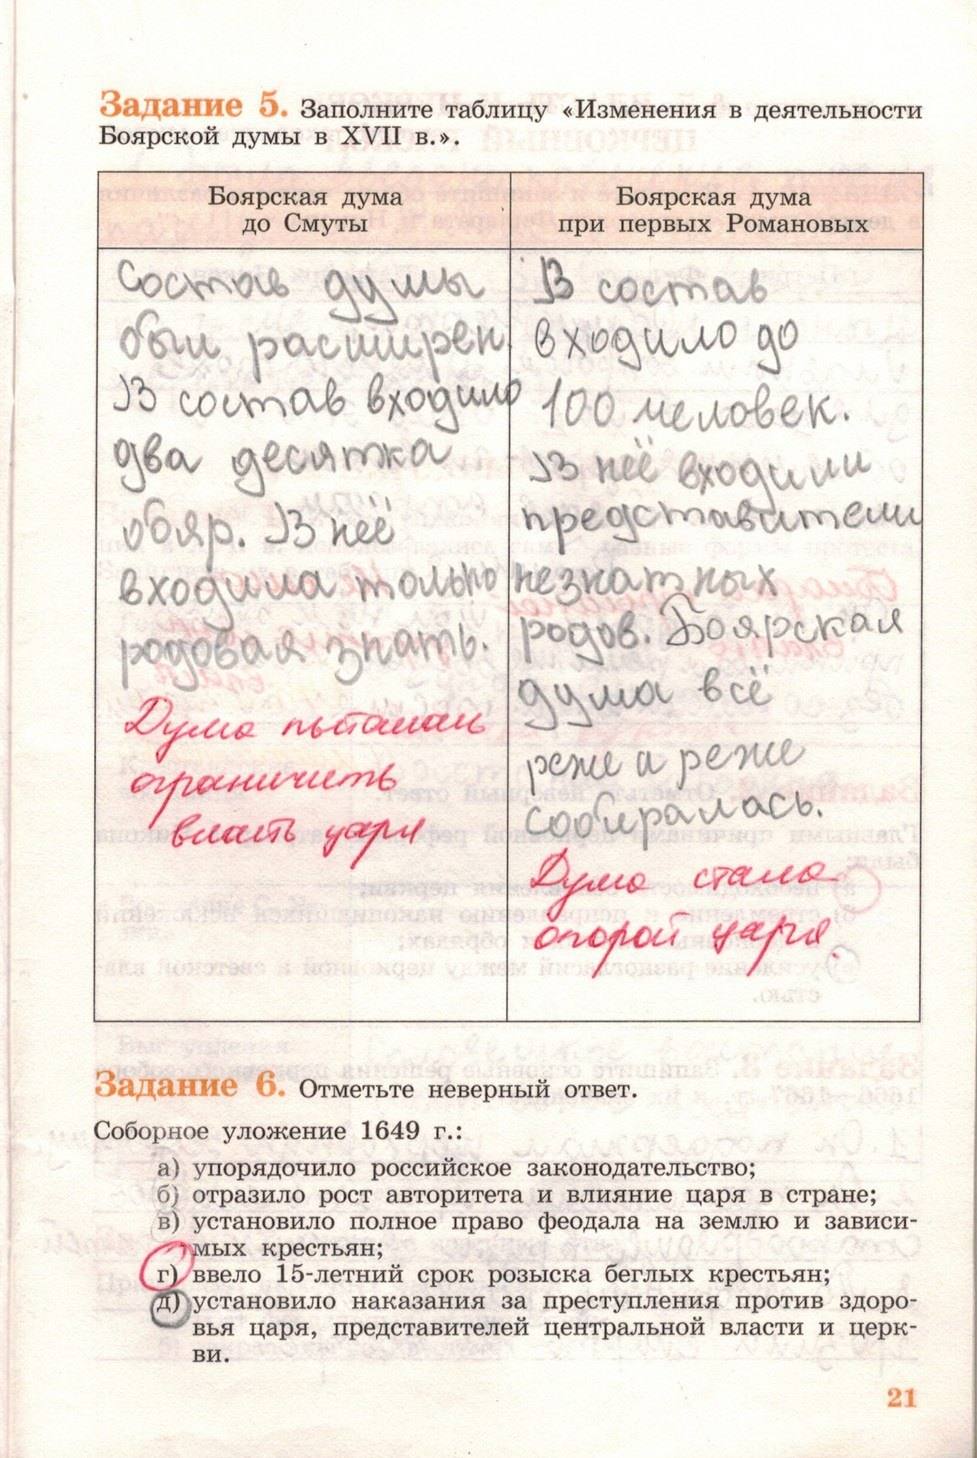 Задание 5. Заполните таблицу «Изменения в деятельности
Боярской думы в XVII в.».
Боярская дума
до Смуты
Состав думы
был расширен.
В состав входило
два десятка
бояр. В неё
входила только
родовая знать.
Дума пыталась
ограничить
власть царя
Боярская дума
при первых Романовых
В состав
входило до
100 человек.
В неё входили
представители
незнатных
родов. Боярская
дума всё
реже и реже
собиралась.
Дума стала
опорой царя.
Задание 6. Отметьте неверный ответ.
Соборное уложение 1649 г.:
а) упорядочило российское законодательство;
б) отразило рост авторитета и влияние царя в стране;
в) установило полное право феодала на землю и зависи-
мых крестьян;
г) ввело 15-летний срок розыска беглых крестьян;
д) установило наказания за преступления против здоро-
вья царя, представителей центральной власти и церк-
ви.
21